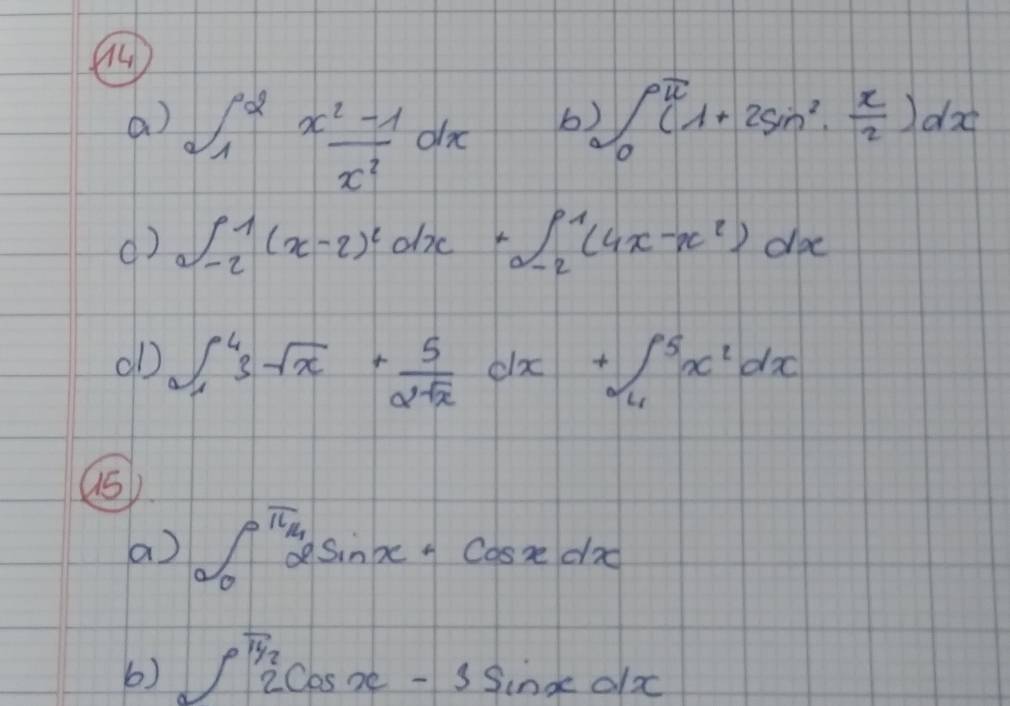 14
a) ∫₁² (x² - 1)/x² dx b) ∫₀^π (1 + 2sin² · x/2) dx
c) ∫₋₂¹ (x-2)² dx + ∫₋₂¹ (4x-x²) dx
d) ∫₁⁴ 3√x + 5/(2√x) dx + ∫₄⁵ x² dx
15
a) ∫₀^(π/4) 2sin x + cos x dx
b) ∫^(π/2) 2cos x - 3 sin x dx